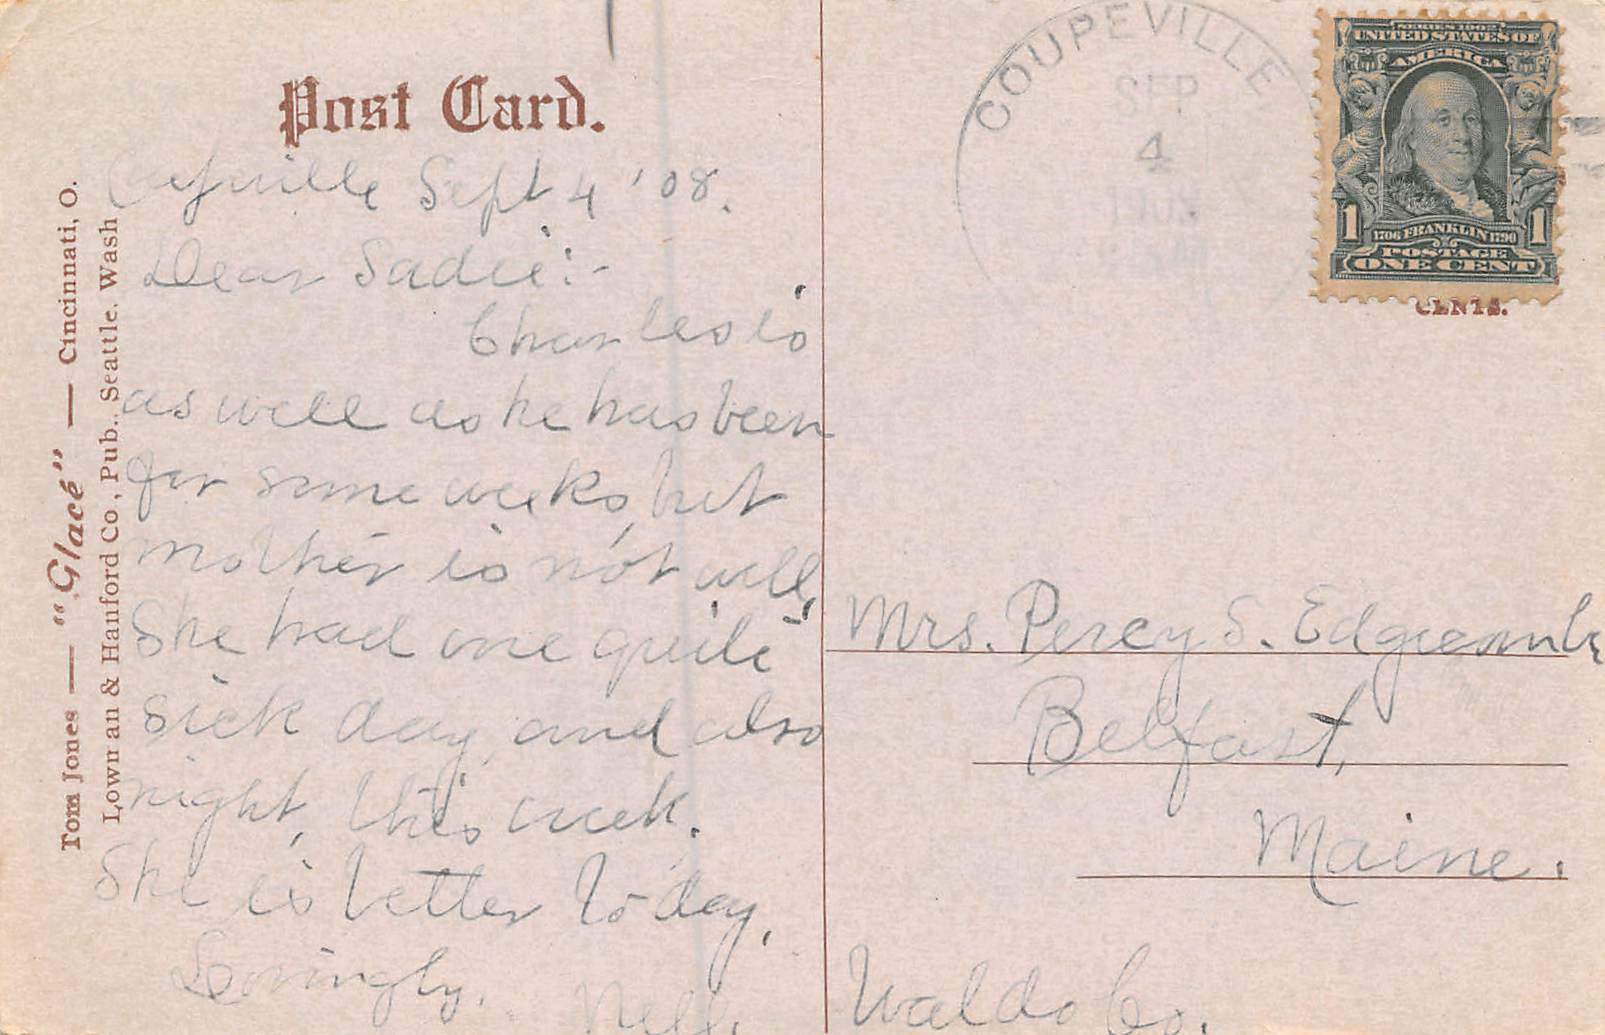 Post Card.
Tom Jones — "Glacé" — Cincinnati, O.
Lowman & Hanford Co, Pub., Seattle. Wash
Coupeville Sept 4 '08.
Dear Sadie:-
Charles is
as well as he has been
for some weeks, but
mother is not well,
She had one quite
sick day, and also
night, this week.
She is better to-day,
Lovingly,
Nell.
COUPEVILLE
SEP
4
1908
SERIES 1902
UNITED STATES OF
AMERICA
1 1
1706 FRANKLIN 1790
POSTAGE
ONE CENT
CENTS.
Mrs. Percy S. Edgecomb
Belfast,
Maine.
Waldo Co.